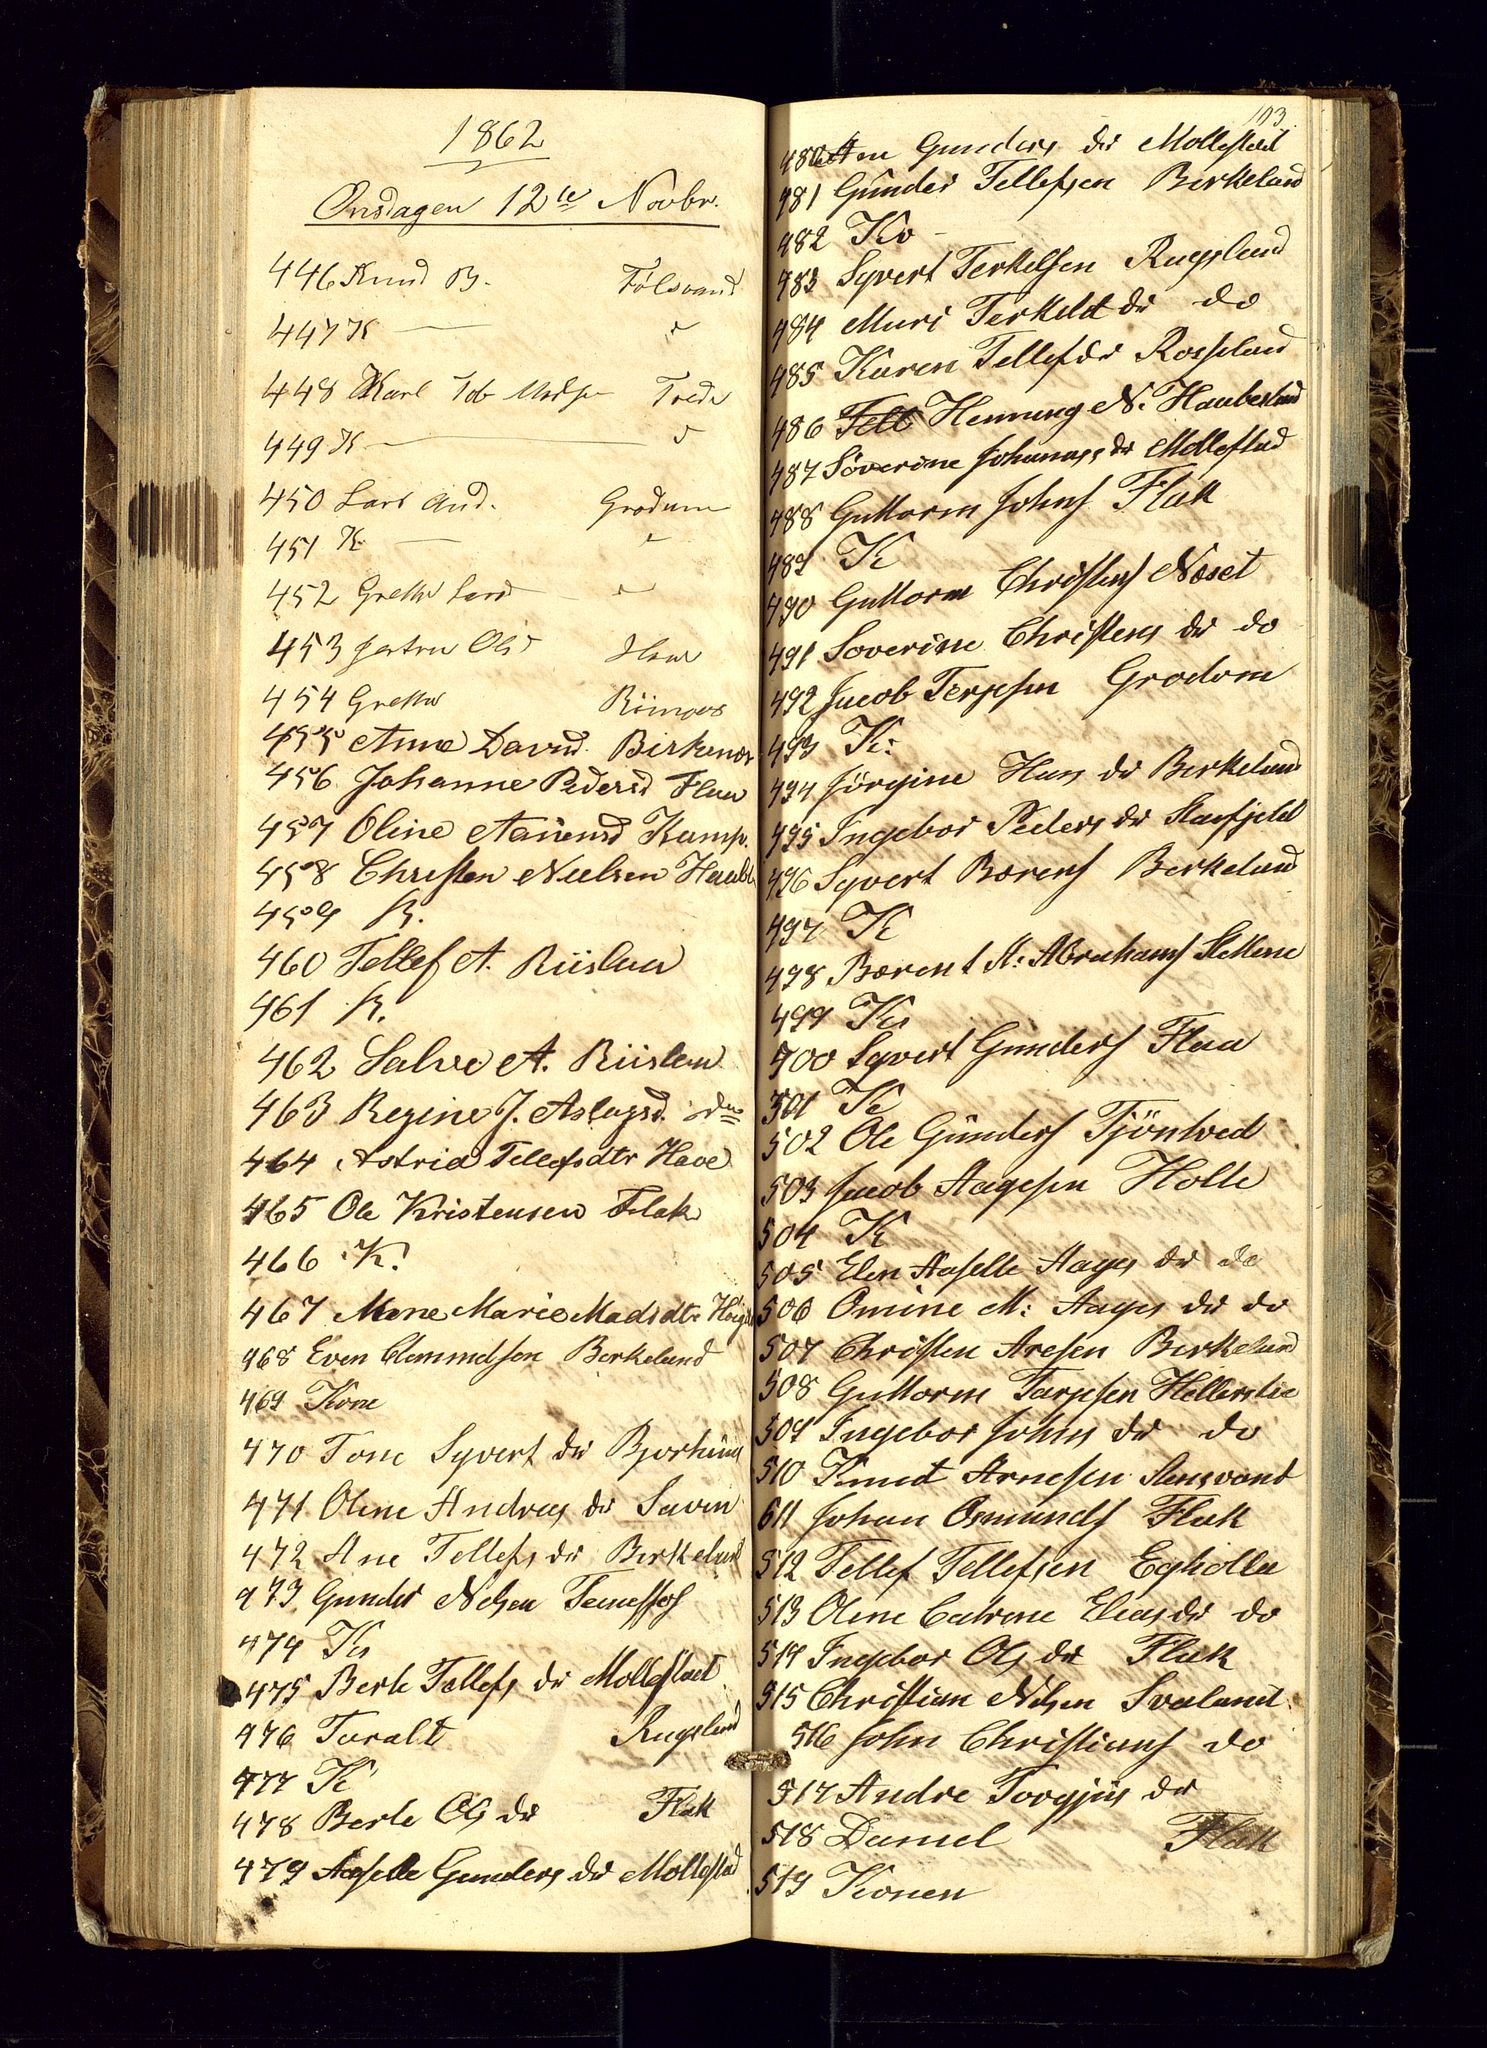 1862
Onsdagen 12te Novbr.
446 Knud B. Følsvand
447 K — "
448 Karl Tob Trede
449 K — "
450 Lars And. Grodum
451 K — "
452 Grethe Lars — "
453 Ols
454 Grethe
455 Anne Davids Birkenes
456 Johanne Pedersd Flaa
457 Oline Aanensd Kamp.
458 Christen Nielsen Haubl
459 K.
460 Tellef A. Riislaa
461 K.
462 Salve A. Riislaa
463 Regine J. Aslagsd. do
464 Astrid Tellefsdtr Have
465 Ole Kristensen Flak
466 K.
467 Marie Madsdtr
468 Even Clemmedsen Berkeland
469 Kone
470 Tone Syvert dr
471 Oline Andreas dr
472 Ane Tellefs dr Berkeland
473 Gunder Nelsen
474 Ko
475 Berte Tellefs dr Mollestaet
476 Taralt Rugsland
477 K
478 Berte Ols dr Flak
479 Aaselle Gunders dr Mollestad
103
480 An Gunders dr Mollestad
481 Gunder Tellefsen Berkeland
482 Ko -
483 Syvert Terkelsen Rugsland
484 Mari Terkelt dr do
485 Karen Tellef dr Rosseland
486 Tell Henning N. Haubesland
487 Söverine Johanns dr Mollestad
488 Guttorm Johns Flak
489 K
490 Guttorm Christens Næset
491 Soverine Christens dr do
492 Jacob Terjesen Grodom
493 K:
494 Jörgine Hans dr Berkeland
495 Ingebor Peders dr
496 Syvert Bærens Berkeland
497 K
498 Bærent A: Abrahams Slettene
499 Ko
500 Syvert Gunders Flaa
501 K
502 Ole Gunders Tjönhved
503 Jacob Aagesen Holle
504 K
505 Elen Aaselle Aages dr do
506 Omine M: Aages dr do
507 Christen Aresen Berkeland
508 Guttorm Tarjesen Hellerslie
509 Ingebor Johns dr do
510 Knut Arnesen
611 Johan Osmunds Flak
512 Tellef Tellefsen
513 Oline Catrine Elias dr do
514 Ingebor Ols dr Flak
515 Christian Nilsen Svaland
516 John Christians do
517 Andre Torgjüs dr
518 Daniel Flak
519 Konen